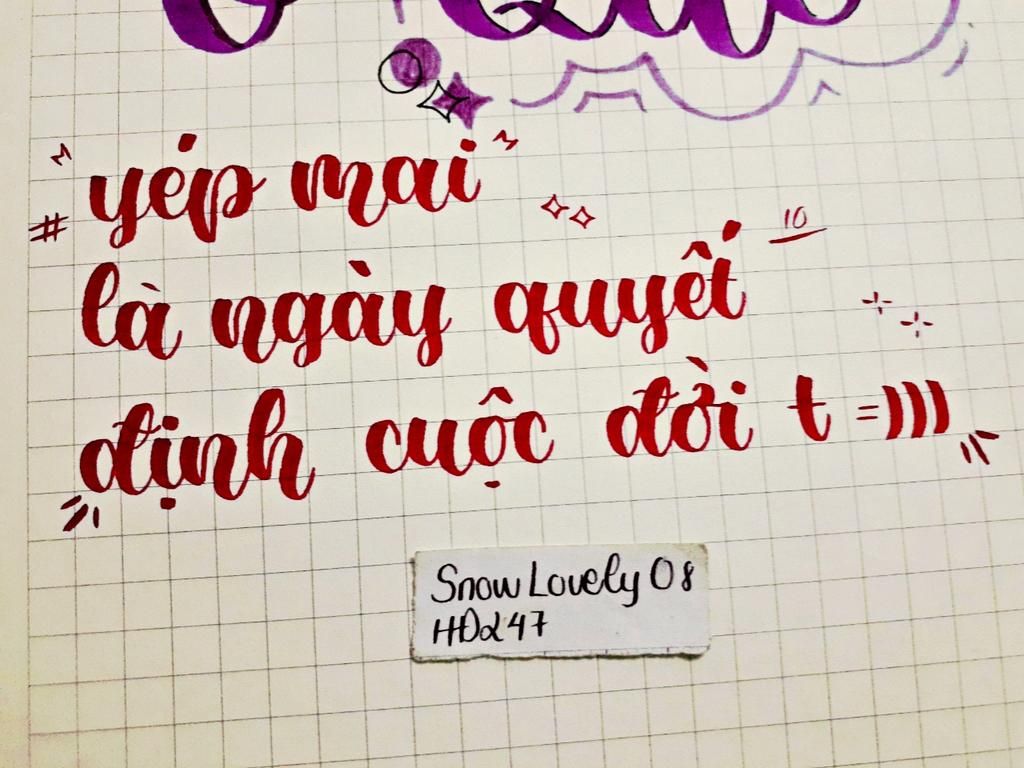 # yép mai
là ngày quyết
10
định cuộc đời t =)))
Snow Lovely 08
HĐ247